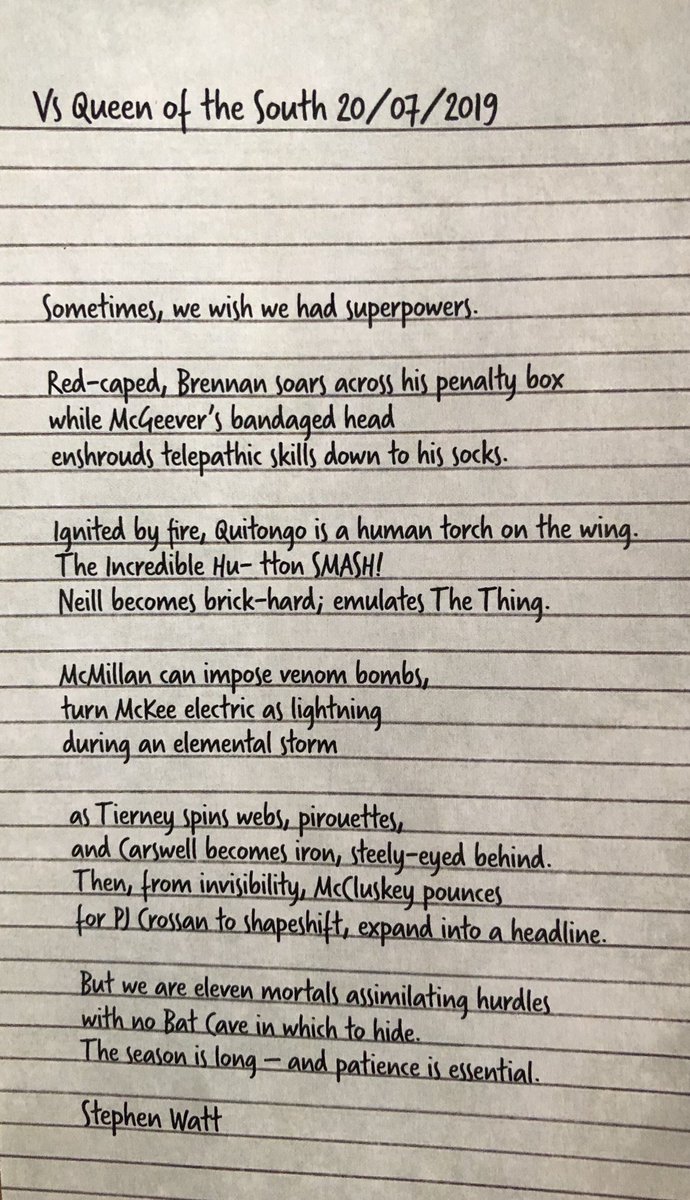 Vs Queen of the South 20/07/2019
Sometimes, we wish we had superpowers.
Red-caped, Brennan soars across his penalty box
while McGeever's bandaged head
enshrouds telepathic skills down to his socks.
Ignited by fire, Quitongo is a human torch on the wing.
The Incredible Hu- tton SMASH!
Neill becomes brick-hard; emulates The Thing.
McMillan can impose venom bombs,
turn McKee electric as lightning
during an elemental storm
as Tierney spins webs, pirouettes,
and Carswell becomes iron, steely-eyed behind.
Then, from invisibility, McCluskey pounces
for PJ Crossan to shapeshift, expand into a headline.
But we are eleven mortals assimilating hurdles
with no Bat Cave in which to hide.
The season is long – and patience is essential.
Stephen Watt